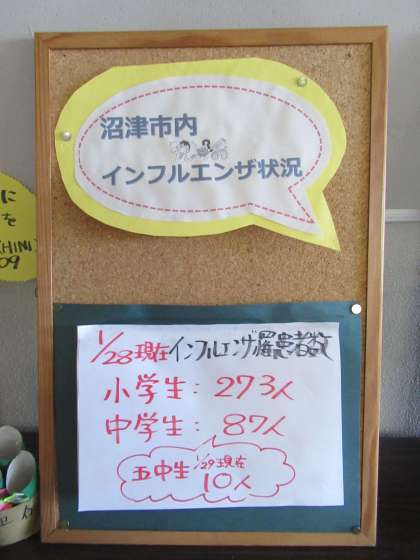 沼津市内
インフルエンザ状況
に
を
(H1N1)
09
1/28現在インフルエンザ罹患者数
小学生：273人
中学生：87人
五中生 1/29現在
10人